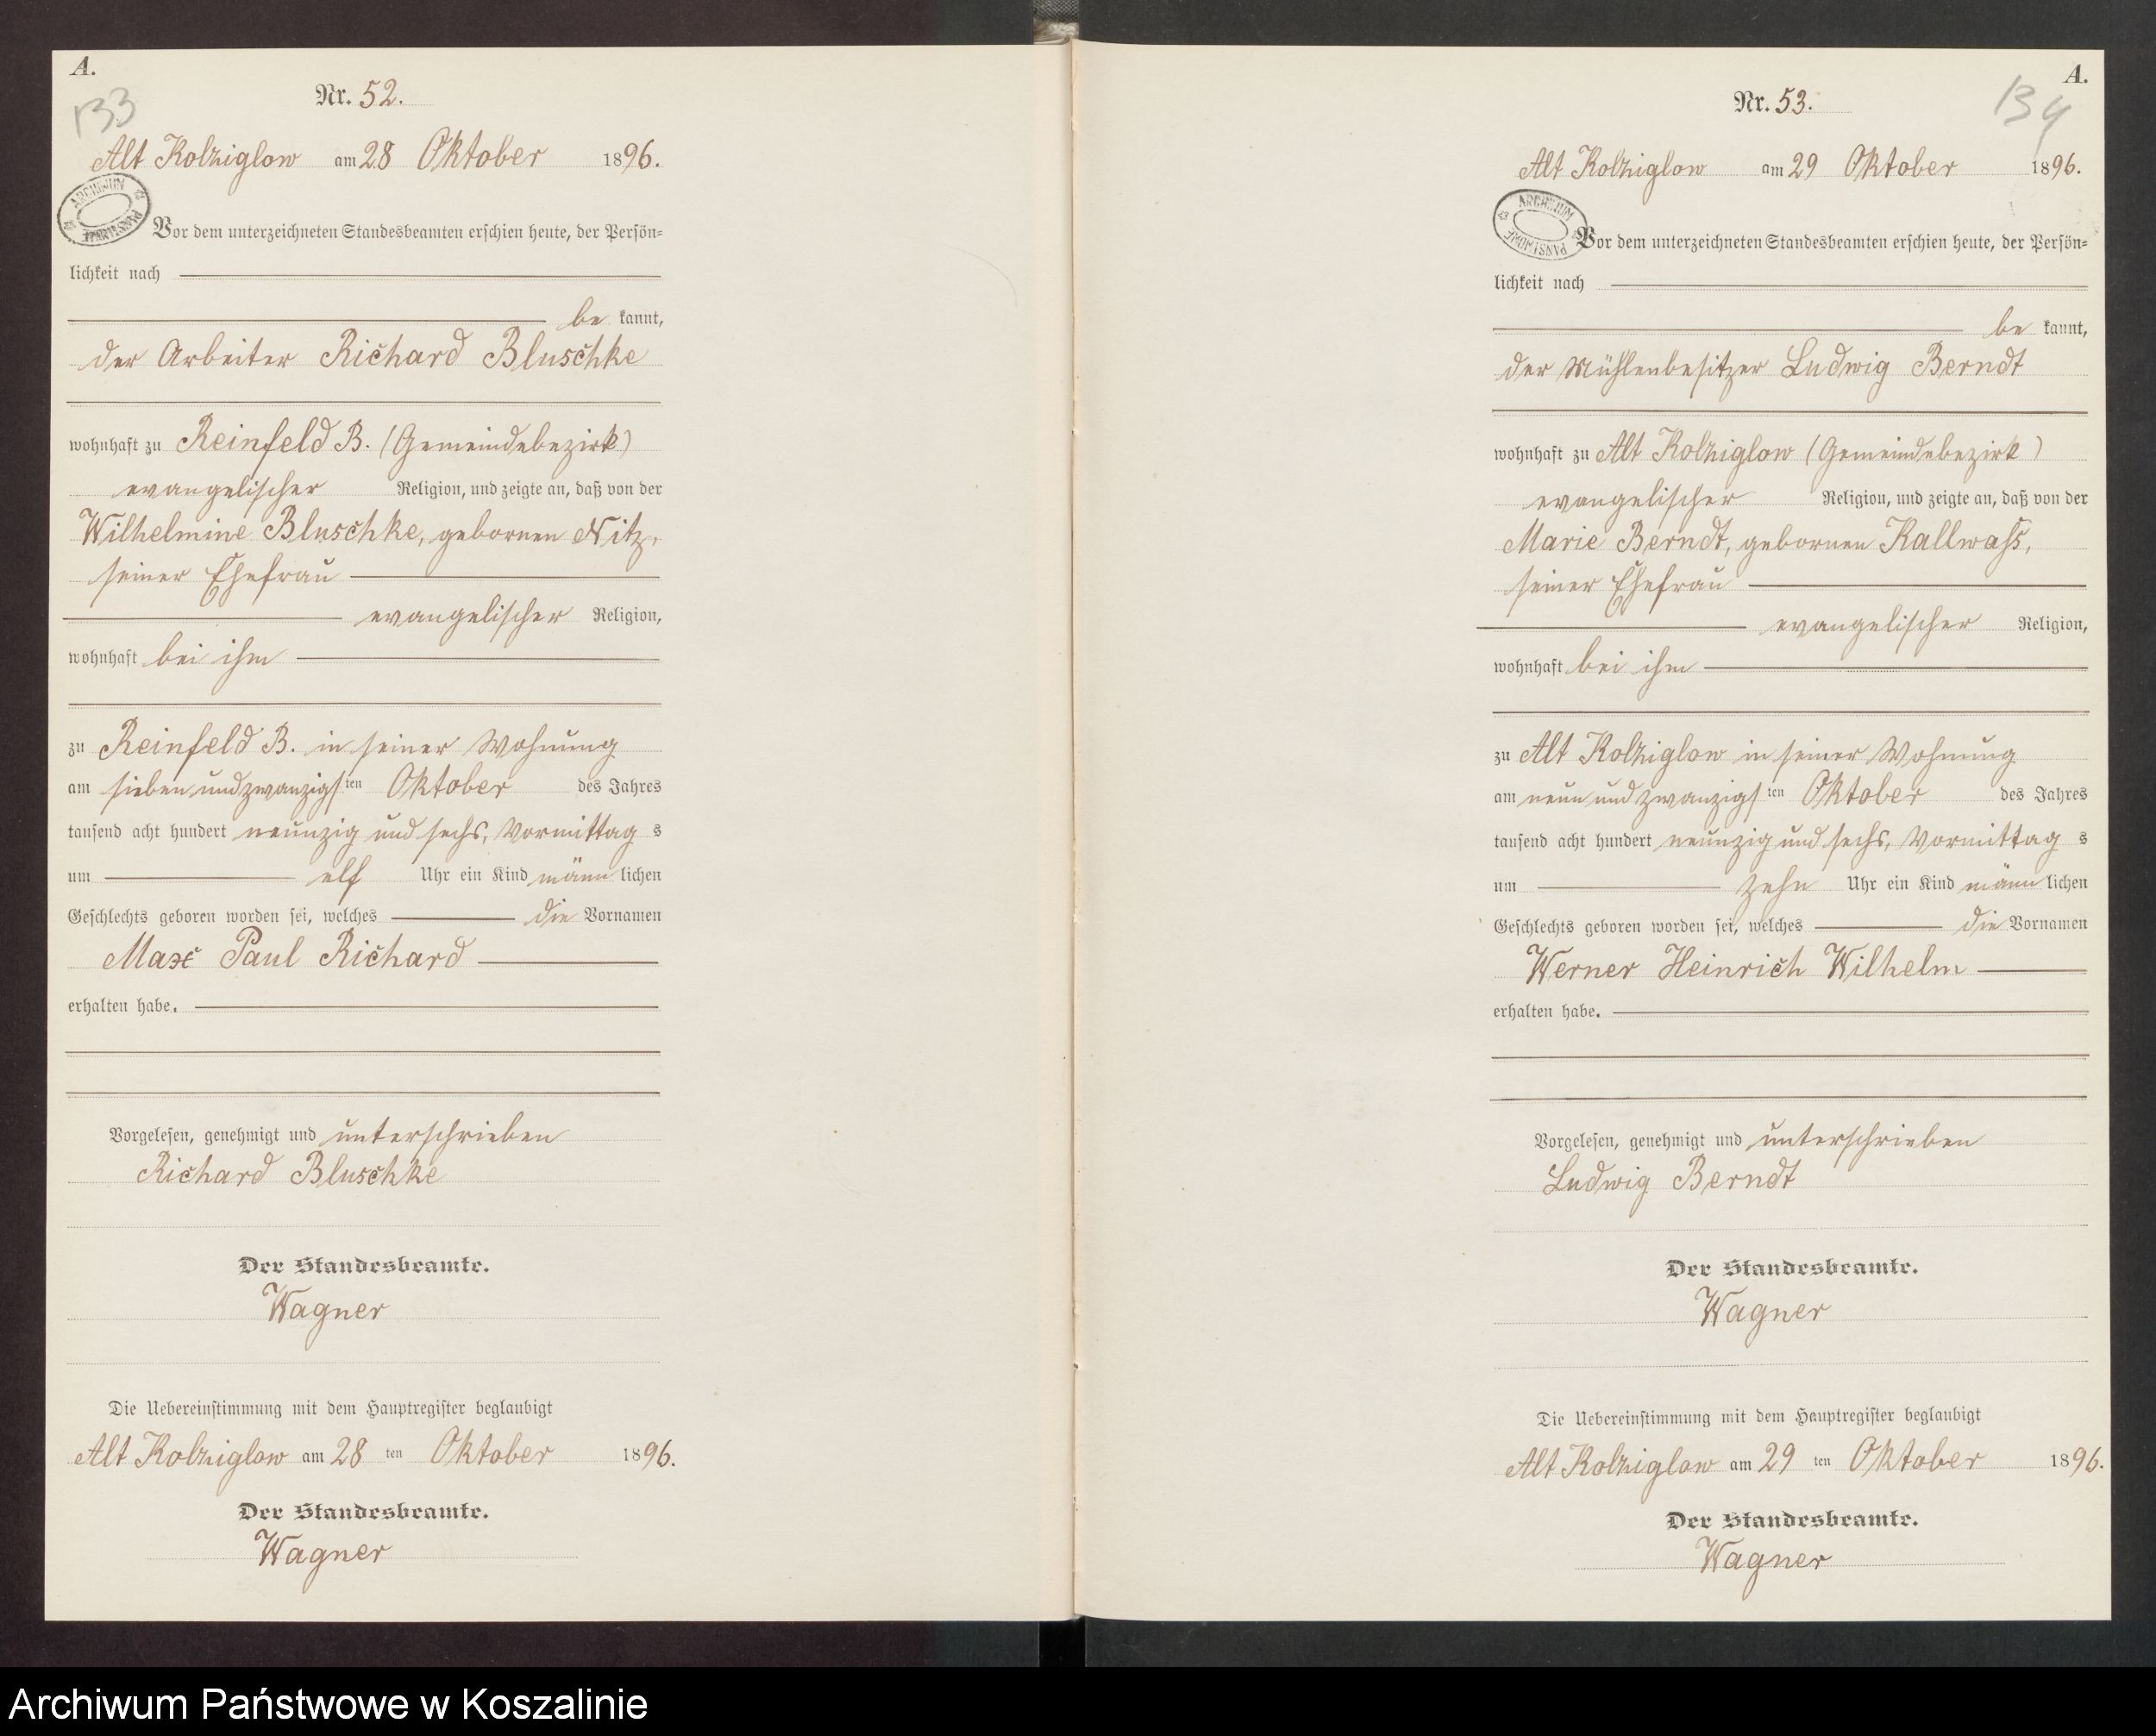 A.
133
Nr. 52.
Alt Kolziglow am 28 Oktober 1896.
ARCHIWUM PAŃSTWOWE
Vor dem unterzeichneten Standesbeamten erschien heute, der Persön-
lichkeit nach
be kannt,
der Arbeiter Richard Bluschke
wohnhaft zu Reinfeld B. (Gemeindebezirk)
evangelischer Religion, und zeigte an, daß von der
Wilhelmine Bluschke, gebornen Nitz,
seiner Ehefrau
evangelischer Religion,
wohnhaft bei ihm
zu Reinfeld B. in seiner Wohnung
am sieben und zwanzigsten Oktober des Jahres
tausend acht hundert neunzig und sechs, Vormittag s
um elf Uhr ein Kind männ lichen
Geschlechts geboren worden sei, welches die Vornamen
Max Paul Richard
erhalten habe.
Vorgelesen, genehmigt und unterschrieben
Richard Bluschke
Der Standesbeamte.
Wagner
Die Uebereinstimmung mit dem Hauptregister beglaubigt
Alt Kolziglow am 28 ten Oktober 1896.
Der Standesbeamte.
Wagner
A.
134
Nr. 53.
Alt Kolziglow am 29 Oktober 1896.
ARCHIWUM PAŃSTWOWE
Vor dem unterzeichneten Standesbeamten erschien heute, der Persön-
lichkeit nach
be kannt,
der Mühlenbesitzer Ludwig Berndt
wohnhaft zu Alt Kolziglow (Gemeindebezirk)
evangelischer Religion, und zeigte an, daß von der
Marie Berndt, gebornen Kallwass,
seiner Ehefrau
evangelischer Religion,
wohnhaft bei ihm
zu Alt Kolziglow in seiner Wohnung
am neun und zwanzigsten Oktober des Jahres
tausend acht hundert neunzig und sechs, Vormittag s
um zehn Uhr ein Kind männ lichen
Geschlechts geboren worden sei, welches die Vornamen
Werner Heinrich Wilhelm
erhalten habe.
Vorgelesen, genehmigt und unterschrieben
Ludwig Berndt
Der Standesbeamte.
Wagner
Die Uebereinstimmung mit dem Hauptregister beglaubigt
Alt Kolziglow am 29 ten Oktober 1896.
Der Standesbeamte.
Wagner
Archiwum Państwowe w Koszalinie